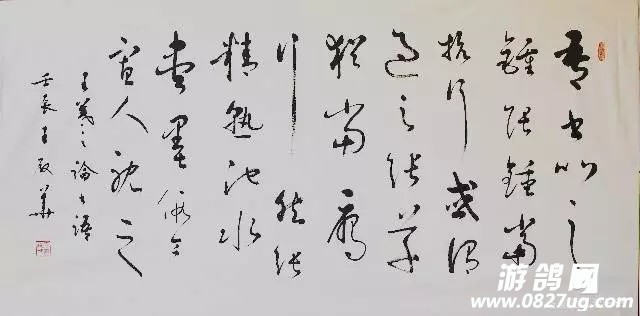 吾書比之
鍾張鍾當
抗行或謂
過之張草
猶當雁
行然張
精熟池水
盡墨假令
寡人耽之
王羲之論書語
壬辰王華
游鸽网
www.0827ug.com